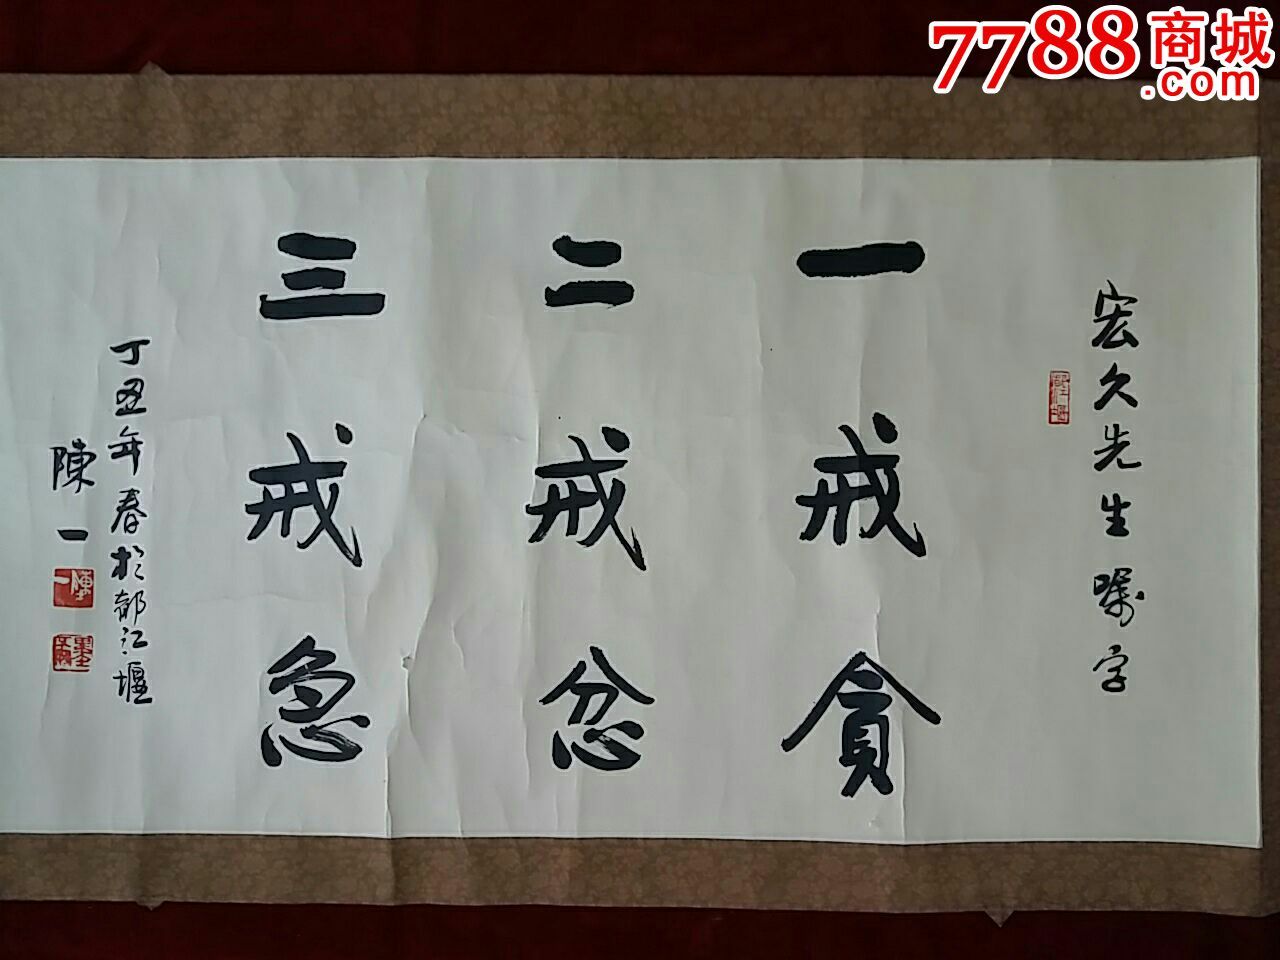 7788商城
.com
宏久先生嘱字
一戒贪
二戒忿
三戒急
丁丑年春於都江堰
陳一